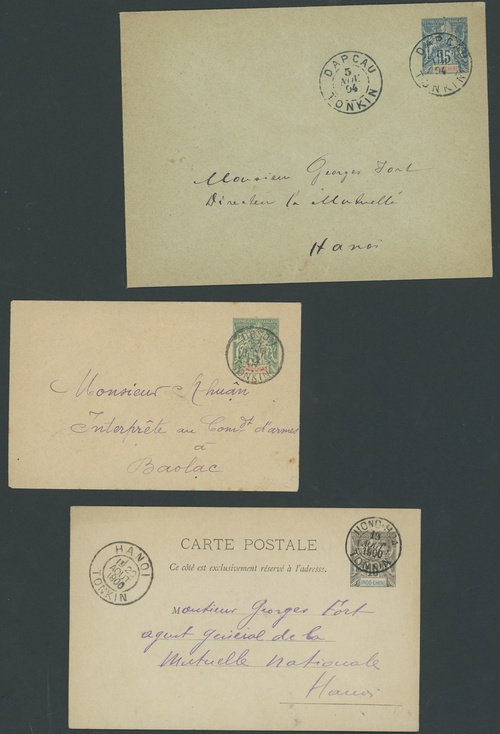 DAPCAU
5
NOV
94
TONKIN
DAPCAU
15
94
TONKIN
Monsieur Georges Fort
Directeur la Mutuelle
Hanoi
5
TONKIN
Monsieur Khuân
Interprête au Comdt d'armes
à
Baolac
HANOI
20
AOUT
1900
TONKIN
MONG-HOP
19
1900
TONKIN
10
INDO-CHINE
CARTE POSTALE
Ce côté est exclusivement réservé à l'adresse.
Monsieur Georges Fort
agent général de la
Mutuelle Nationale
Hanoi